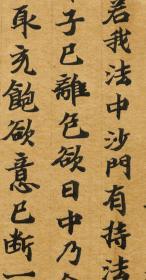 若我法中沙門有持法
子已離色欲日中乃食
取充飽欲意已斷一